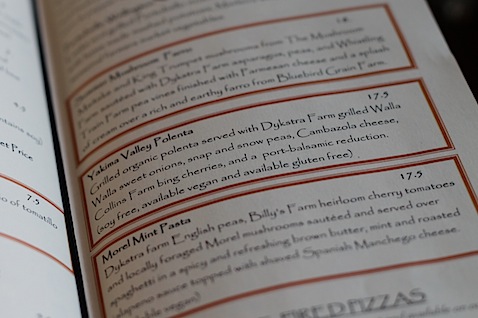 9.5
contains soy)
et Price
7.5
o of tomatillo
Summer Mushroom Farro
Maitake and King Trumpet mushrooms from The Mushroom
Farm, roasted with Dykstra Farm asparagus, peas, and Whistling
Train Farm pea vines finished with Parmesan cheese and a splash
of cream over a rich and earthy farro from Bluebird Grain Farm.
Yakima Valley Polenta 17.5
Grilled organic polenta served with Dykstra Farm grilled Walla
Walla sweet onions, snap and snow peas, Cambazola cheese,
Collins Farm bing cherries, and a port-balsamic reduction.
(soy free, available vegan and available gluten free)
Morel Mint Pasta 17.5
Dykstra farm English peas, Billy's Farm heirloom cherry tomatoes
and locally foraged Morel mushrooms sautéed and served over
spaghetti in a spicy and refreshing brown butter, mint and roasted
jalapeno sauce topped with shaved Spanish Manchego cheese.
vegan)
FIRED PIZZAS